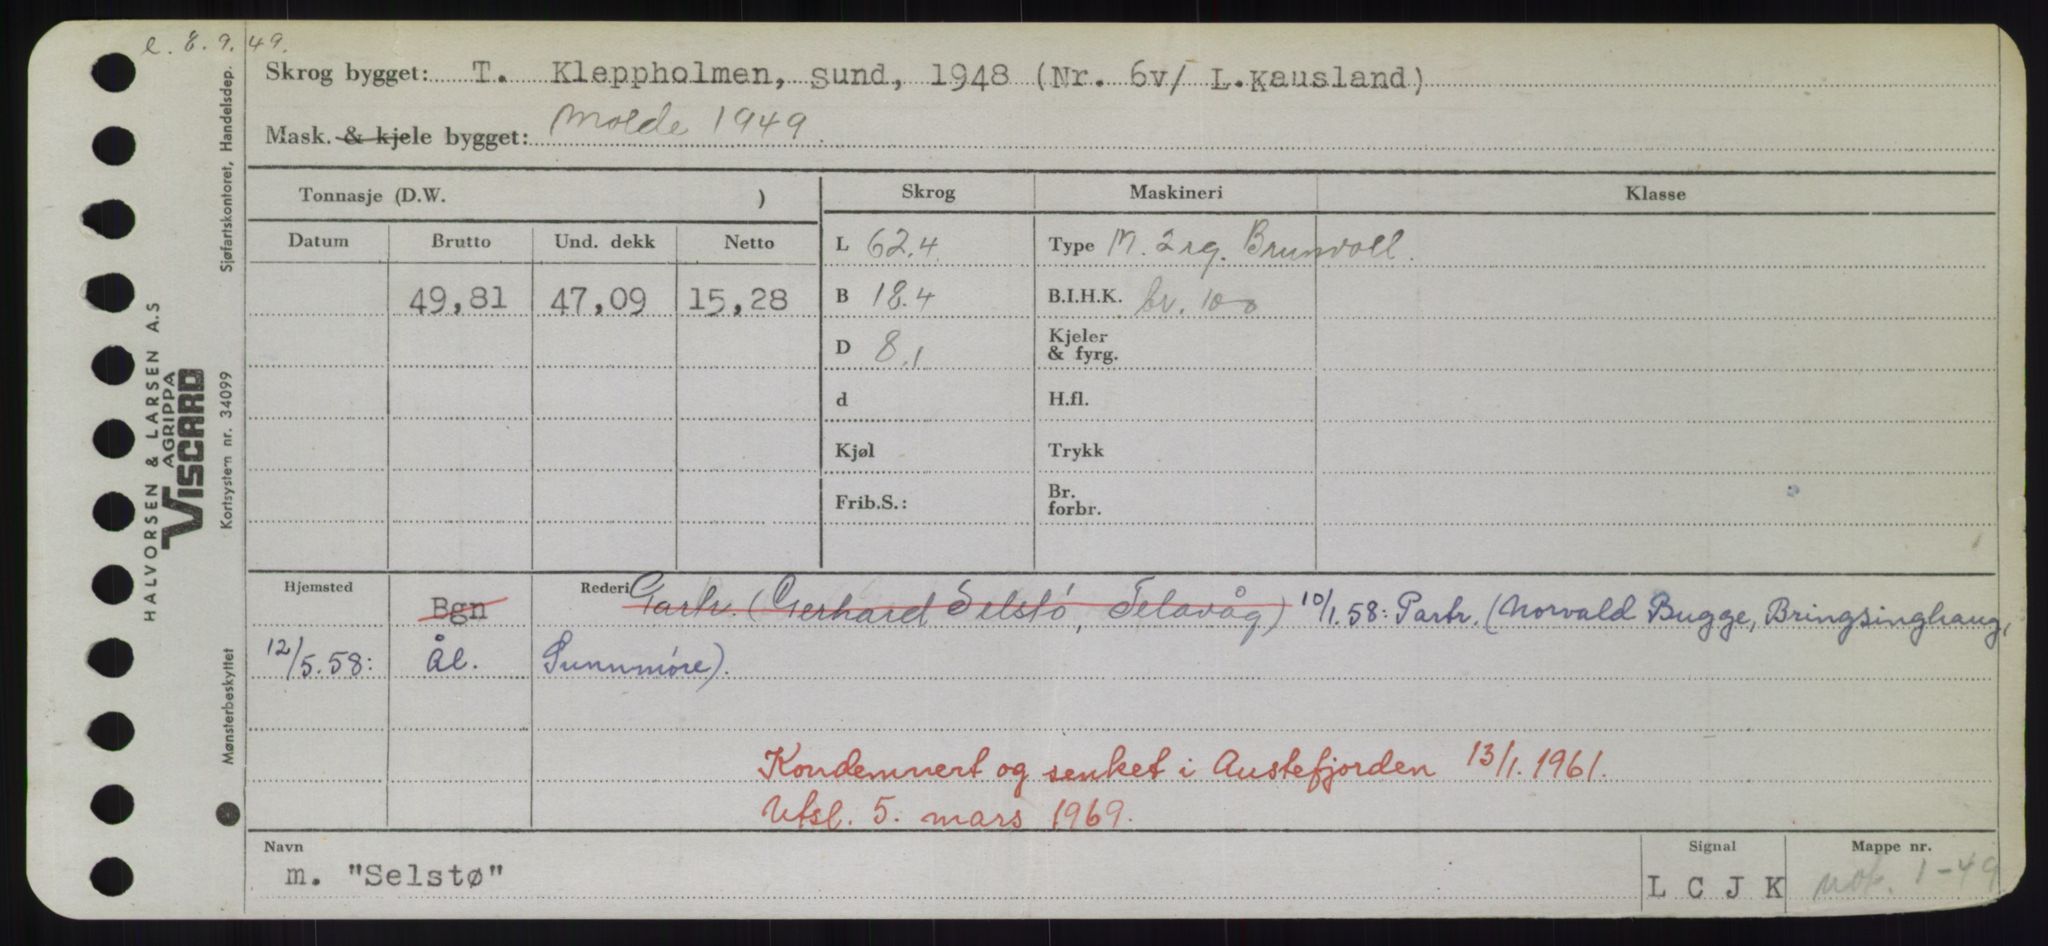 e. 8.9.49.
Skrog bygget: T. Kleppholmen, Sund, 1948 (Nr. 6v/ L.Kausland)
Mask. & kjele bygget: Molde 1949.
Tonnasje (D.W. )
Skrog Maskineri Klasse
Datum Brutto Und. dekk Netto
L 62.4 Type M. 2 rg. Brunvoll.
49,81 47,09 15,28
B 18.4 B.I.H.K. br. 100
D 8.1 Kjeler
& fyrg.
d H.fl.
Kjøl Trykk
Frib.S.: Br.
forbr.
Hjemsted Rederi
Bgn Partr. (Gerhard Selstø, Telavåg) 10/1.58: Partr. (Norvald Bugge, Bringsinghaug,
12/5.58: Ål. Sunnmøre).
Kondemnert og senket i Austefjorden 13/1.1961.
Utsl. 5. mars 1969.
Navn Signal Mappe nr.
m. "Selstø" L C J K 1-49
HALVORSEN & LARSEN A.S
AGRIPPA
VISCARD
Mønsterbeskyttet Kortsystem nr. 34099 Sjøfartskontoret, Handelsdep.